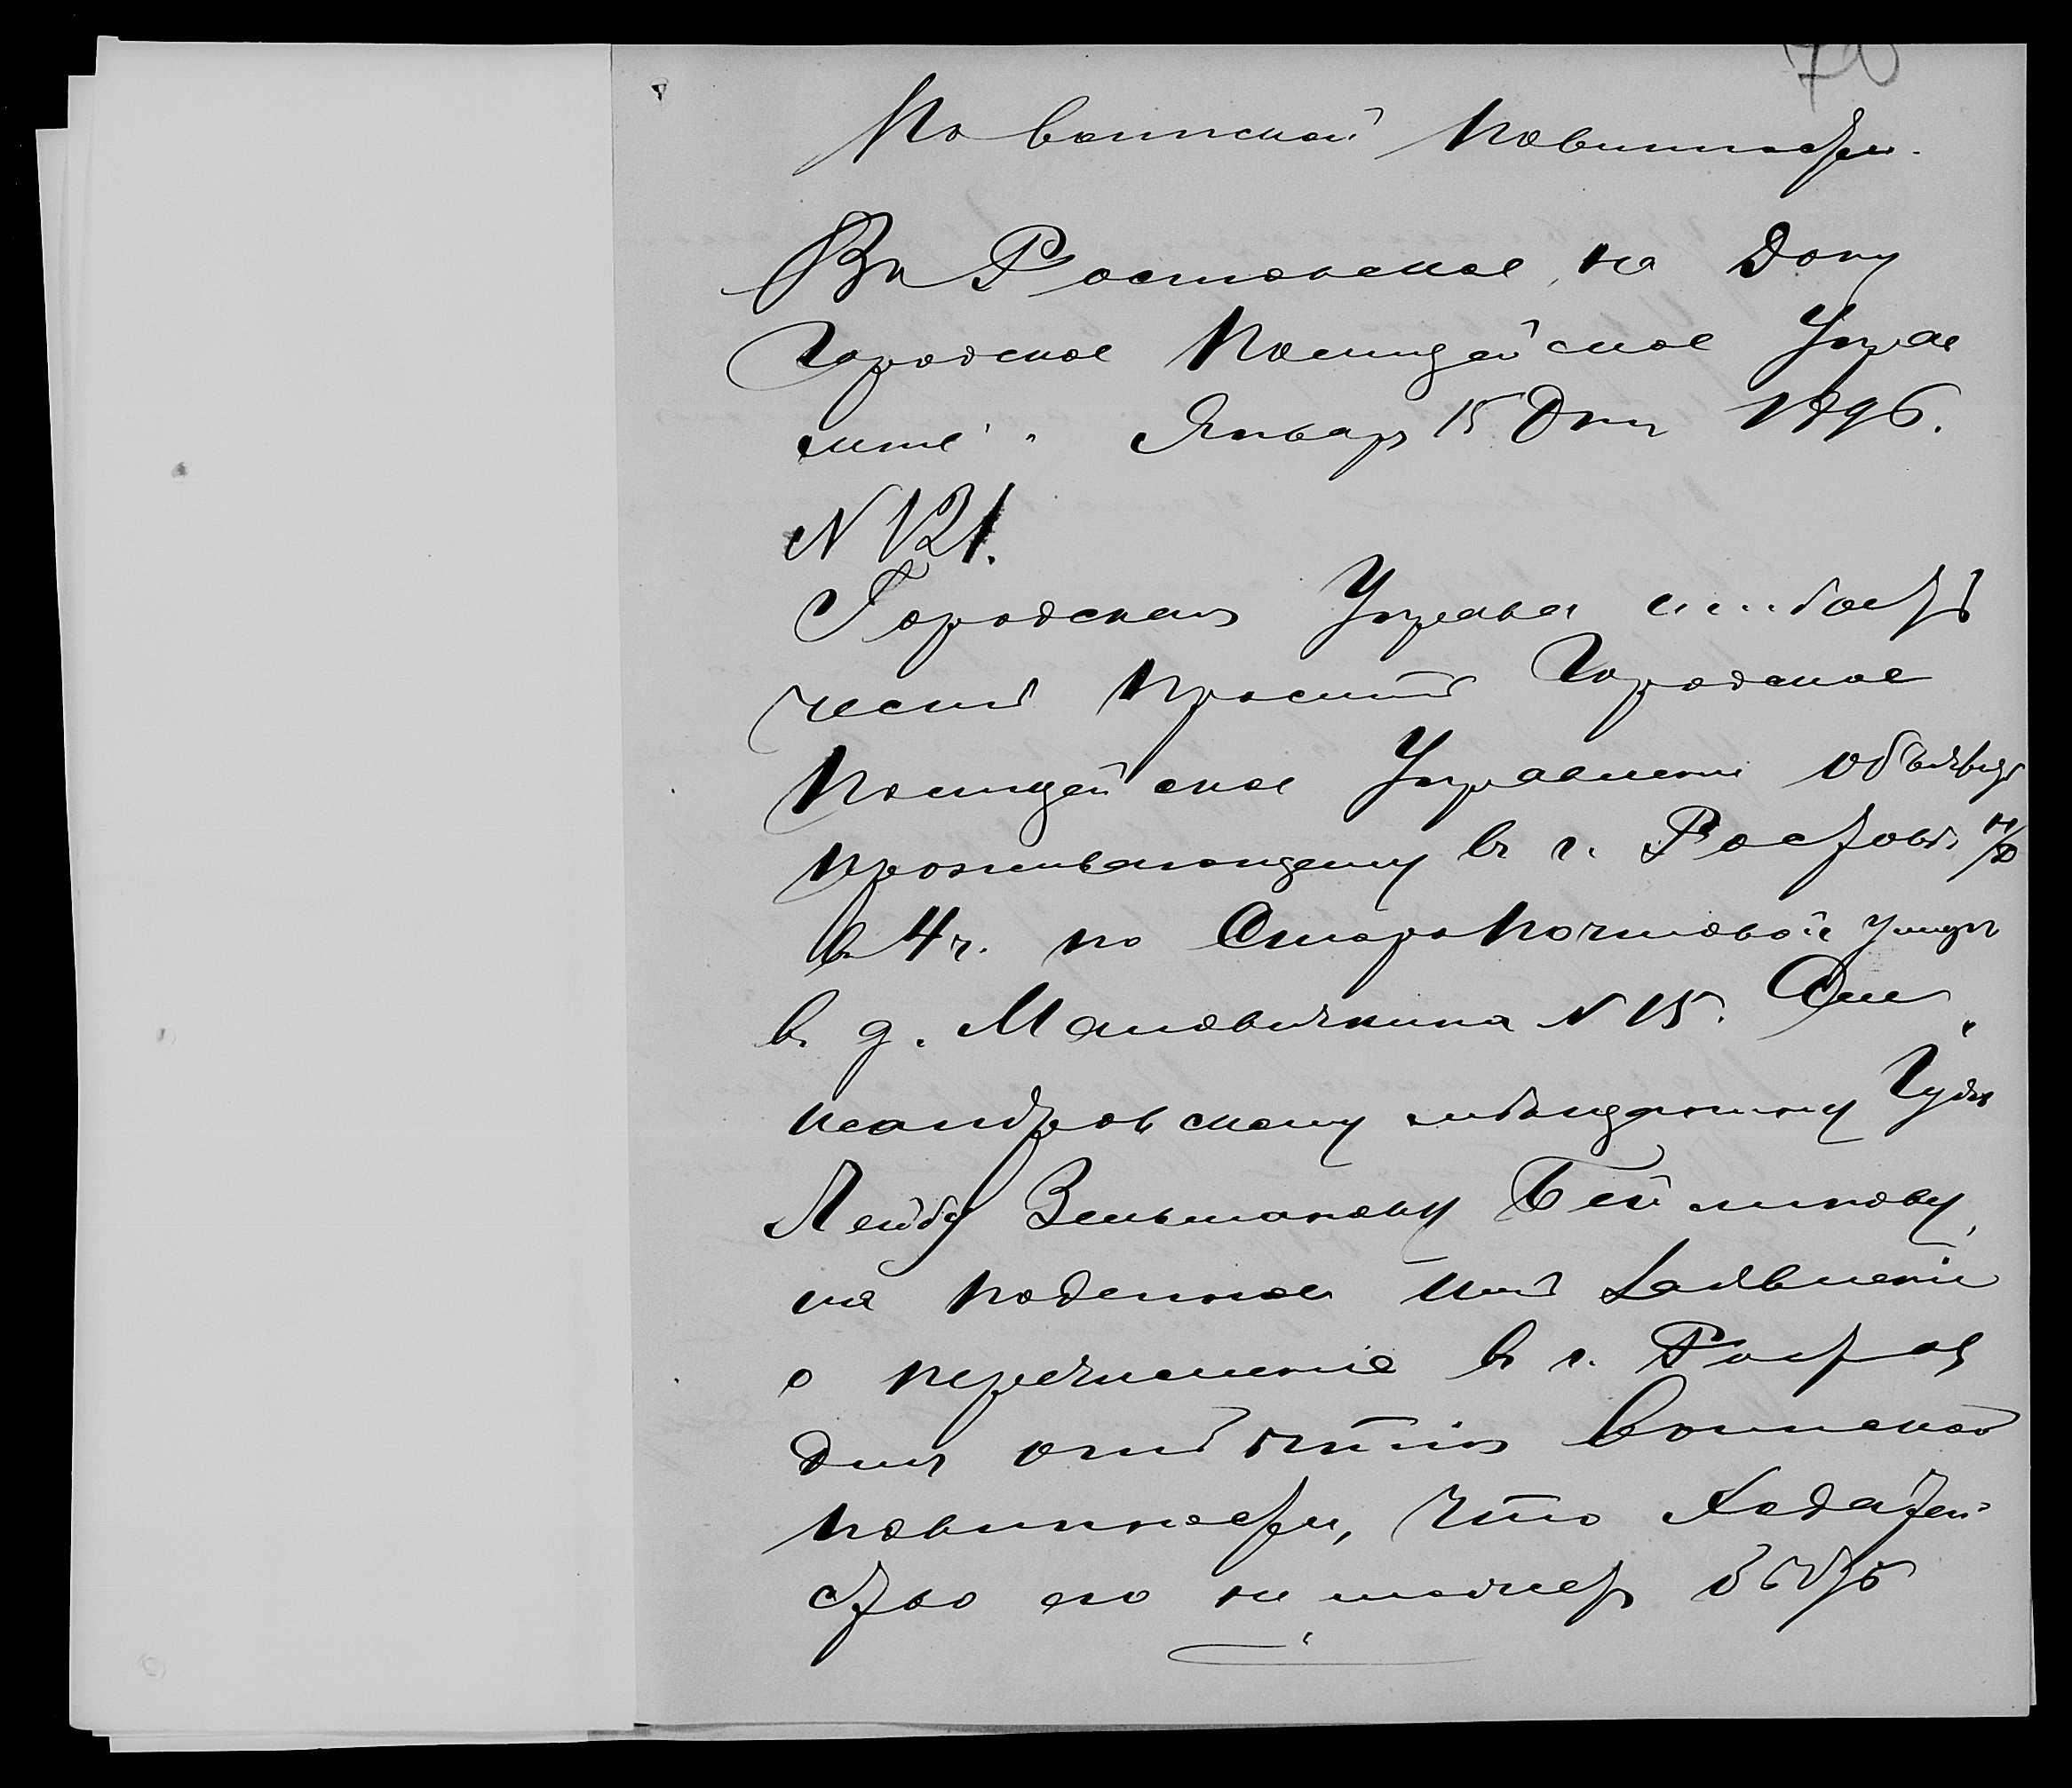 70
По воинской повинности.
Въ Ростовское на Дону
Городское Полицейское Управ
лние. Январ 15 Дня 1896.
N 121.
Городская Управа имѣетъ
честь просить Городское
Полицейское Управление объявить
проживающему въ г. Ростовѣ н/Д
въ 4 ч. по Старо Почтовой улицѣ
въ д. N 15. Але
ксандровскому мѣщанину
Лейбу Зельманову Бейлинову,
на поданное имъ Заявленіе
о перечисленіе въ г. Ростовъ
для отбытія воинской
повинности, что Ходатай
ство его не можетъ быть